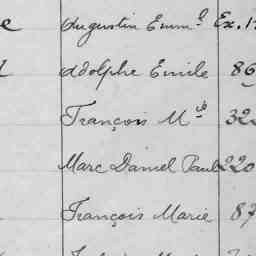 Augustin Emm.l Ex.
Adolphe Emile 86
François M.
Marc Daniel Paul 220
François Marie 87